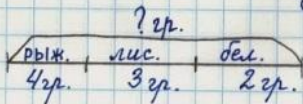 ? гр.
рыж. лис. бел.
4гр. 3гр. 2гр.